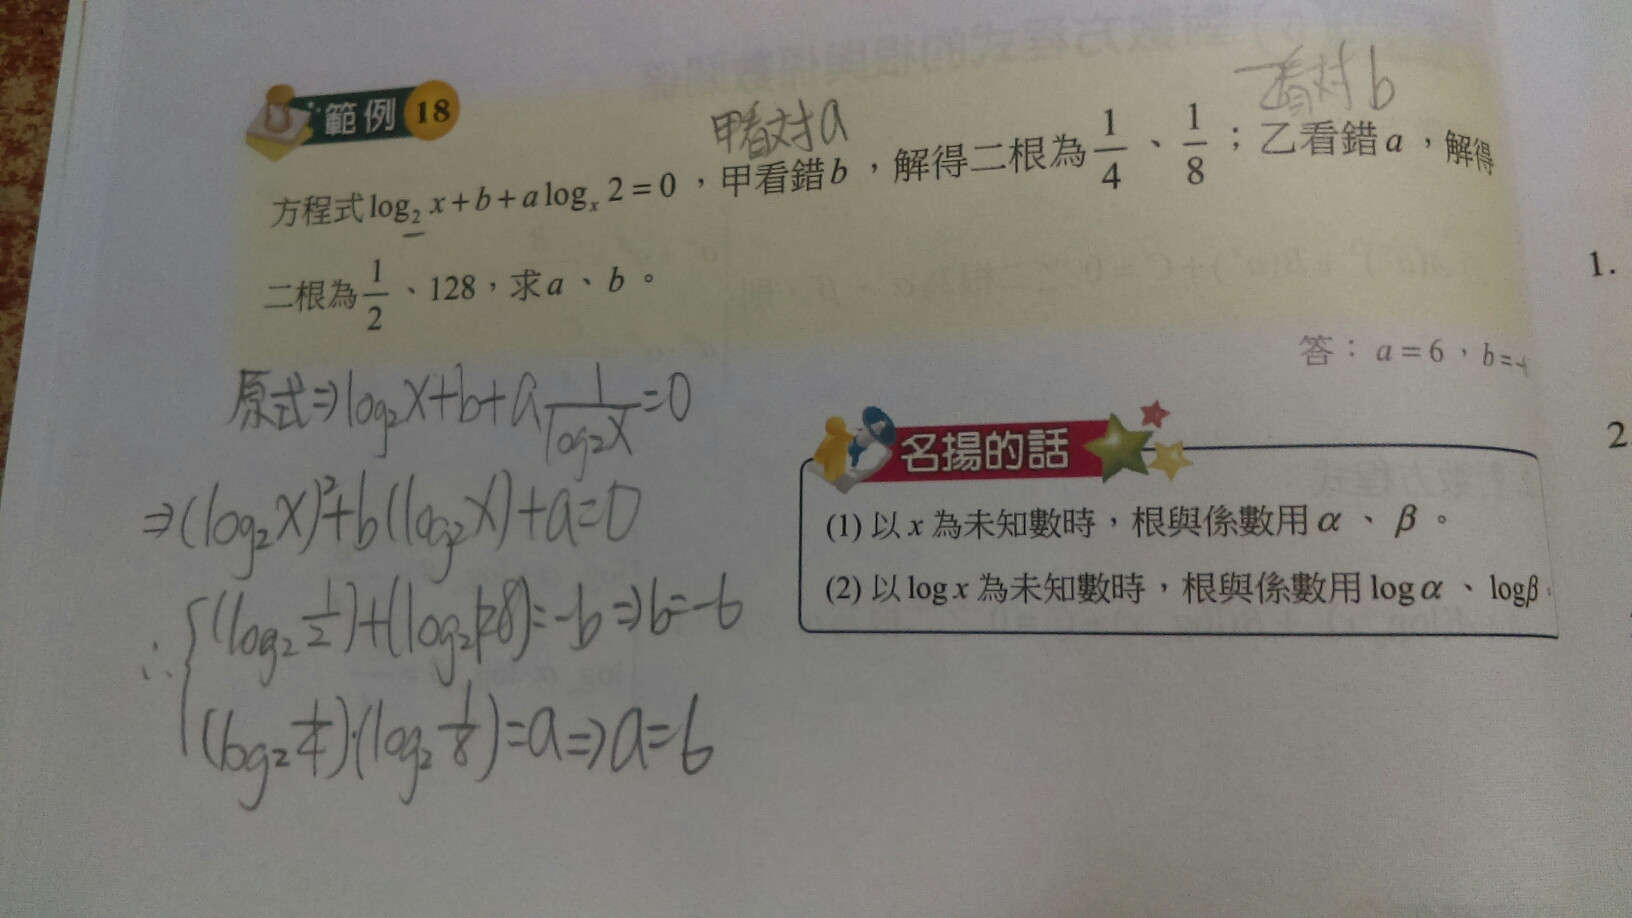 範例 18
甲看对a
乙看对b
方程式 log₂ x + b + a logₓ 2 = 0，甲看錯 b，解得二根為 1/4、1/8；乙看錯 a，解得
二根為 1/2、128，求 a、b。
答：a = 6，b = -6
原式⇒log₂X+b+a 1/log₂X=0
⇒(log₂X)²+b(log₂X)+a=0
∴{(log₂ 1/2)+(log₂128)=-b⇒b=-6
(log₂ 1/4)·(log₂ 1/8)=a⇒a=6
名揚的話
(1) 以 x 為未知數時，根與係數用 α、β。
(2) 以 log x 為未知數時，根與係數用 log α、log β
1.
2